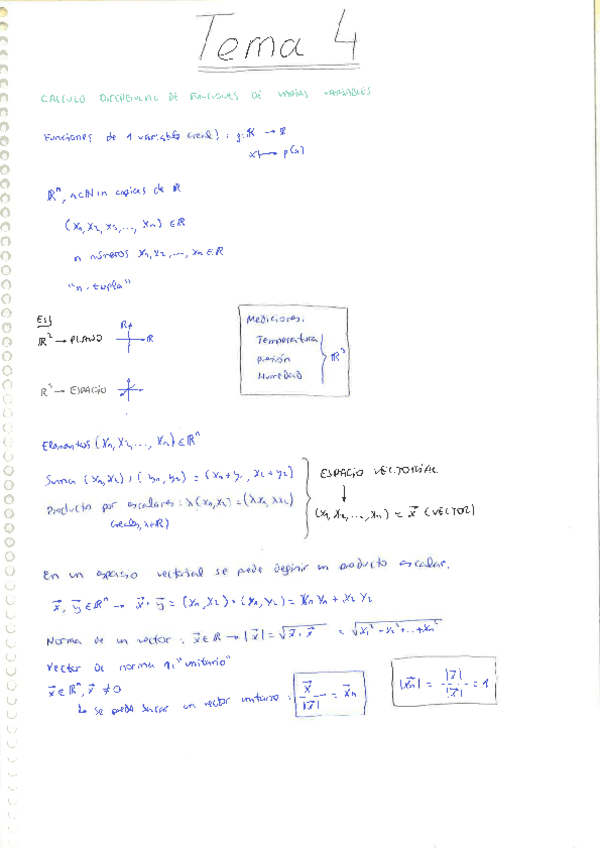 Tema 4
CALCULO DIFERENCIAL DE FUNCIONES DE VARIAS VARIABLES
Funciones de 1 variable (real): g: ℝ → ℝ
x ↦ g(x)
ℝⁿ, n∈ℕ n copias de ℝ
(x₁, x₂, x₃, ..., xₙ) ∈ ℝ
n números x₁, x₂, ..., xₙ ∈ ℝ
"n-tupla"
EJ
ℝ² → PLANO ℝ ℝ
ℝ³ → ESPACIO
Mediciones.
Temperatura
Presión
Humedad
ℝ³
Elementos (x₁, x₂, ..., xₙ) ∈ ℝⁿ
Suma (x₁, x₂) + (y₁, y₂) = (x₁ + y₁, x₂ + y₂)
Producto por escalares: λ(x₁, x₂) = (λx₁, λx₂)
(reales, λ∈ℝ)
ESPACIO VECTORIAL
(x₁, x₂, ..., xₙ) = x⃗ (VECTOR)
En un espacio vectorial se puede definir un producto escalar.
x⃗, y⃗ ∈ ℝⁿ → x⃗ · y⃗ = (x₁, x₂) · (y₁, y₂) = x₁y₁ + x₂y₂
Norma de un vector: x⃗ ∈ ℝ → |x⃗| = √(x⃗ · x⃗) = √(x₁² + x₂² + ... + xₙ²)
Vector de norma 1, "unitario"
x⃗ ∈ ℝⁿ, x⃗ ≠ 0
↳ se puede sacar un vector unitario: x⃗/|x⃗| = x⃗ₙ
|x⃗ₙ| = |x⃗|/|x⃗| = 1